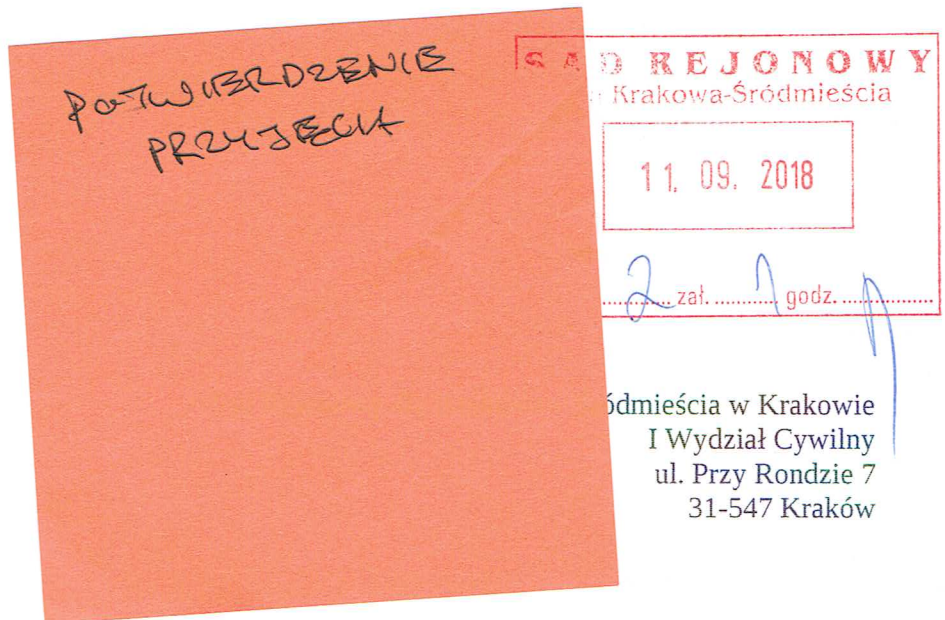 POTWIERDZENIE
PRZYJĘCIA
SĄD REJONOWY
Krakowa-Śródmieścia
11. 09. 2018
2 zał. 1 godz.
ódmieścia w Krakowie
I Wydział Cywilny
ul. Przy Rondzie 7
31-547 Kraków